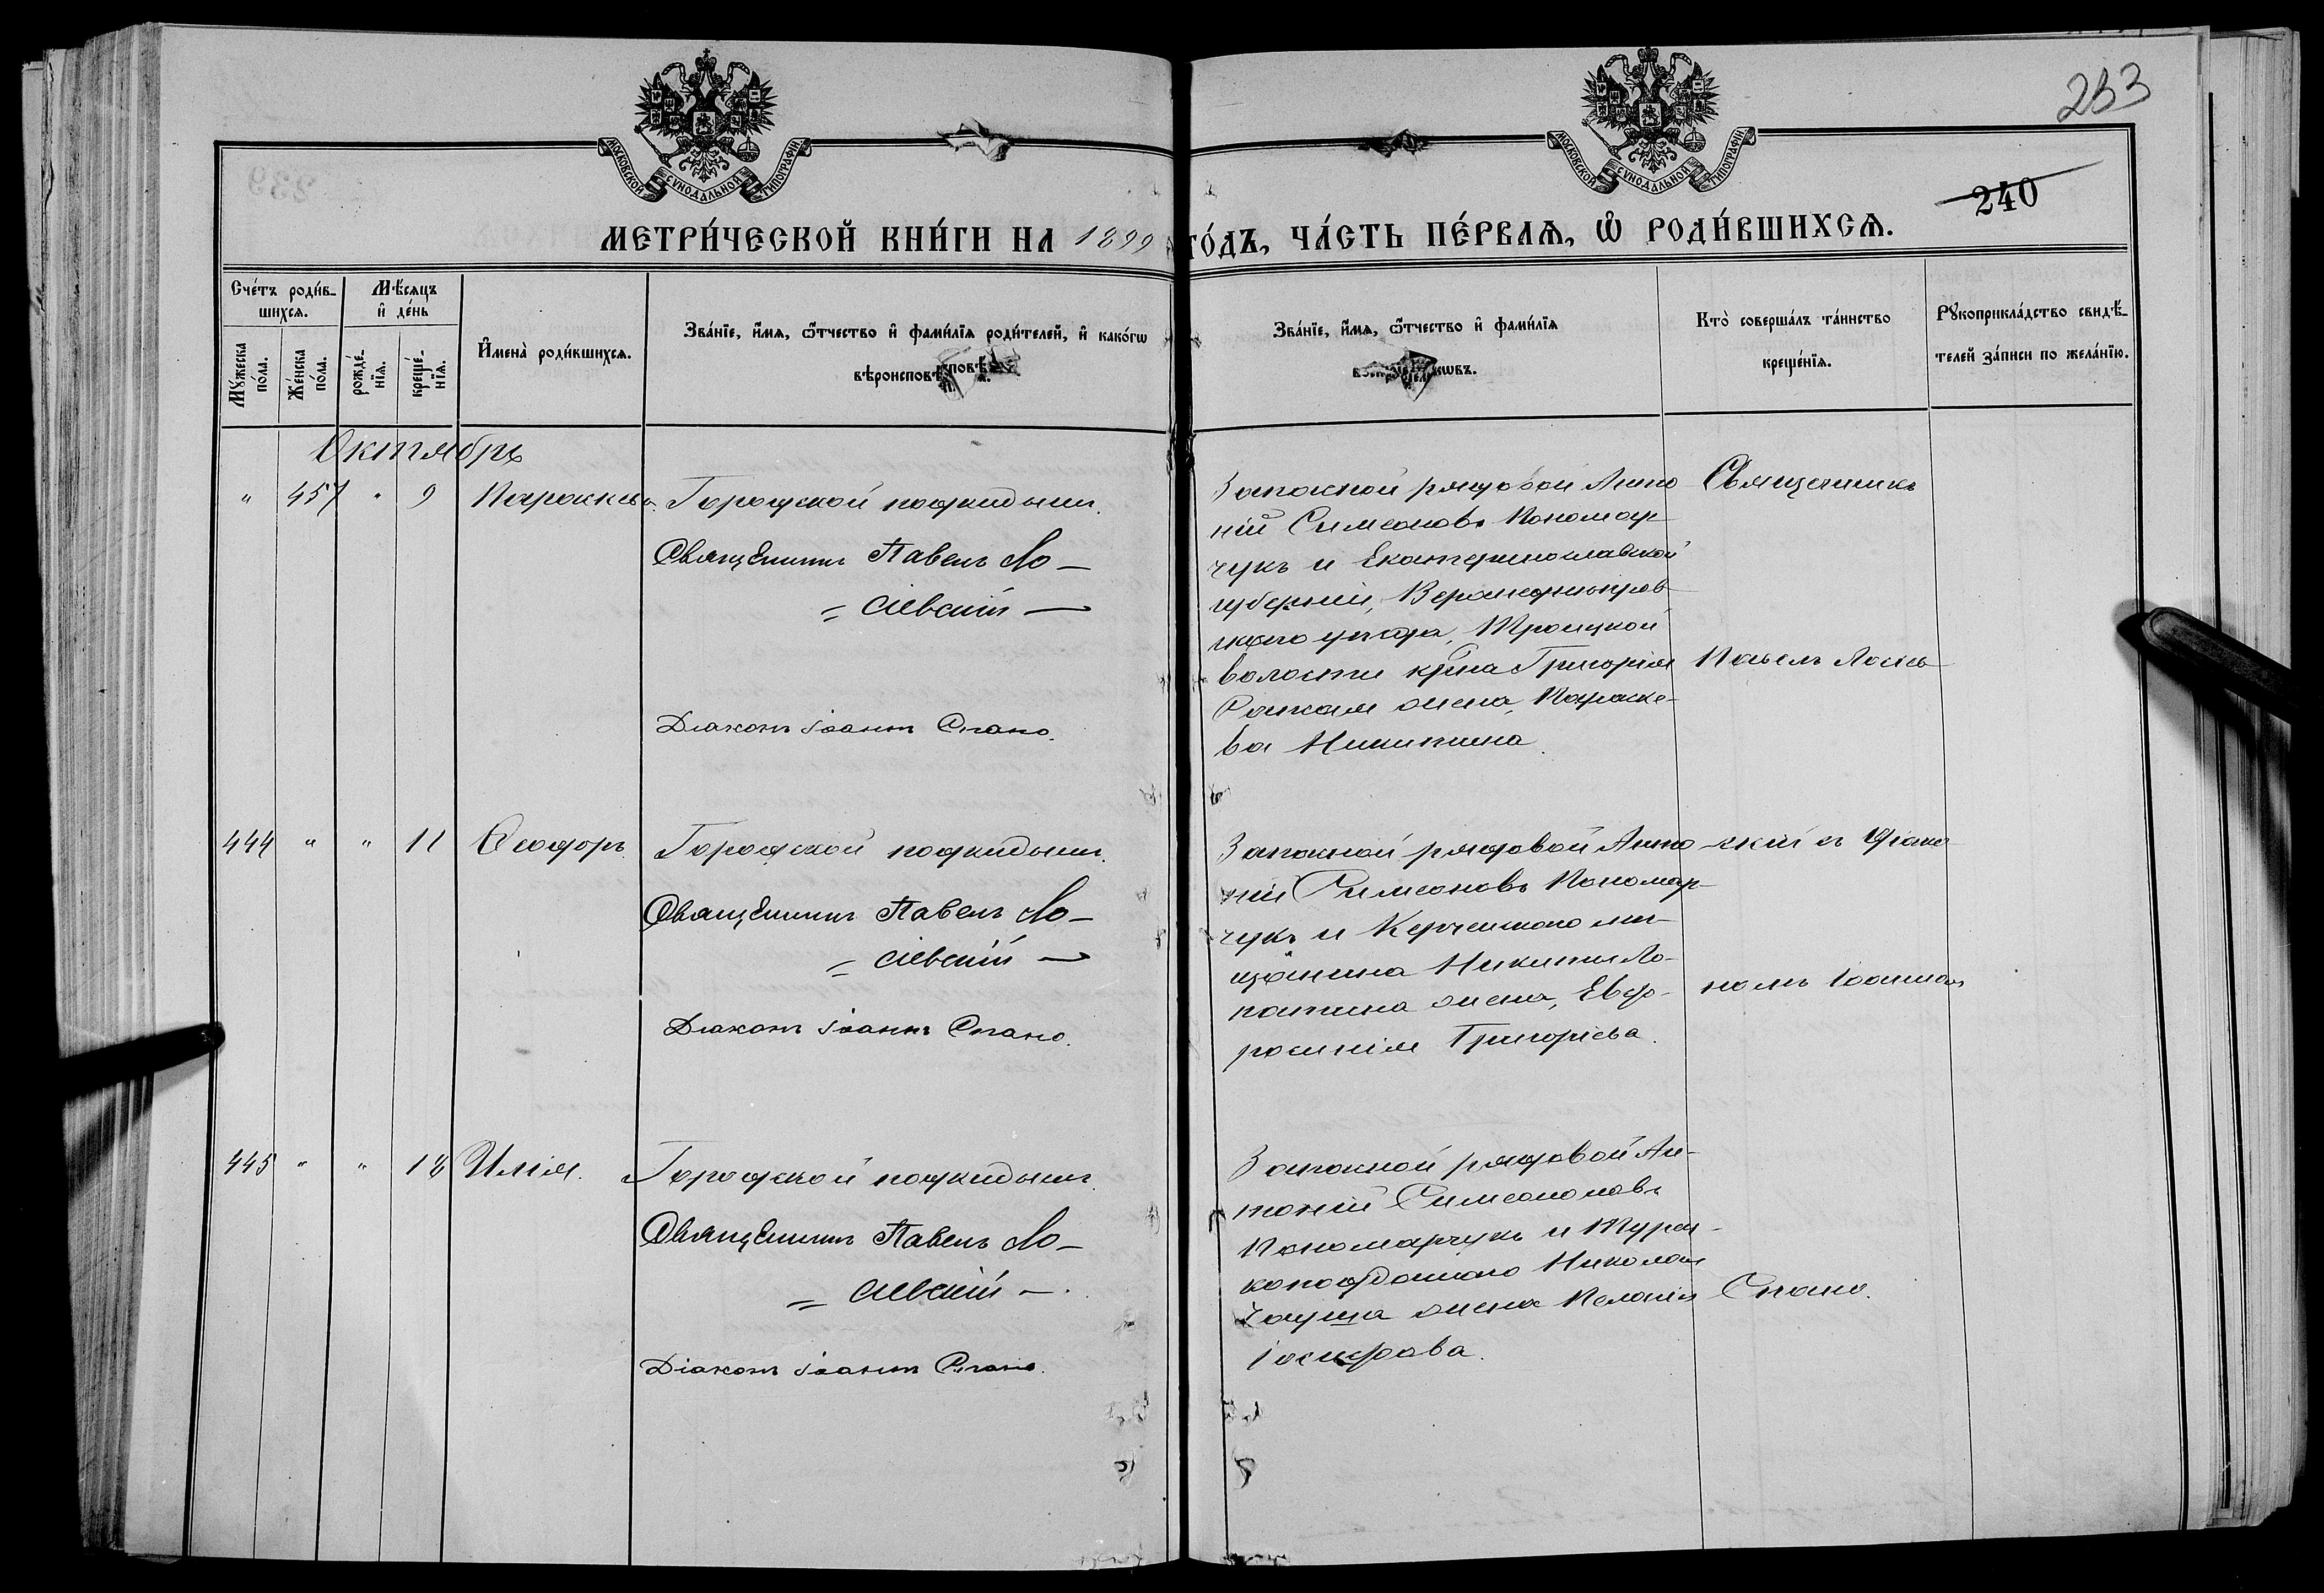 233
240
МОСКОВСКОЙ СѴНОДАЛЬНОЙ ТИПОГРАФІИ
МОСКОВСКОЙ СѴНОДАЛЬНОЙ ТИПОГРАФІИ
МЕТРИ́ЧЕСКОЙ КНИ́ГИ НА 1899 ГО́ДЪ, ЧА́СТЬ ПЕ́РВАЯ, Ѽ РОДИ́ВШИХСЯ.
Сче́тъ роди́в-
шихся.
Мѣ́сяцъ
и҆ де́нь
Мꙋ́жеска по́ла.
Же́нска по́ла.
рожде́-нїя.
креще́-нїя.
И҆мена̀ роди́вшихся.
Зва́нїе, и҆́мя, ѻ҆́тчество и҆ фами́лїя роди́телей, и҆ како́гѡ
вѣроисповѣ
Зва́нїе, и҆́мя, ѻ҆́тчество и҆ фами́лїя
Кто̀ соверша́лъ та́инство
креще́нїя.
Рꙋкоприкла́дство свидѣ́-
телей за́писи по жела́нїю.
Октябрь
" 457 " 9 Параскева. Городской подкидышъ.
Священникъ Павелъ Ло-
= сіевскій —
Діаконъ Іоаннъ Спано.
Запасной рядовой Анто
ній Симеоновъ Пономар-
чукъ и Екатеринославской
губерніи, Верхнеднѣпров-
скаго уѣзда, Троицкой
волости кр-на Григорія
жена, Параске-
ва Никитина.
Священникъ
Павелъ Лосіев-
444 " " 11 Ѳеодоръ. Городской подкидышъ.
Священникъ Павелъ Ло-
= сіевскій —
Діаконъ Іоаннъ Спано.
Запасной рядовой Анто
ній Симеоновъ Пономар-
чукъ и Керченскаго мѣ-
щанина Никиты Ло-
патина жена, Евф-
росинія Григорьева.
скій съ діако
номъ Іоанномъ
445 " " 18 Илія. Городской подкидышъ.
Священникъ Павелъ Ло-
= сіевскій —.
Діаконъ Іоаннъ Спано.
Запасной рядовой Ан-
тоній Симеоновъ
Пономарчукъ и Турец-
коподданнаго Николая
Чауша жена Пелагія
Іосифова.
Спано.